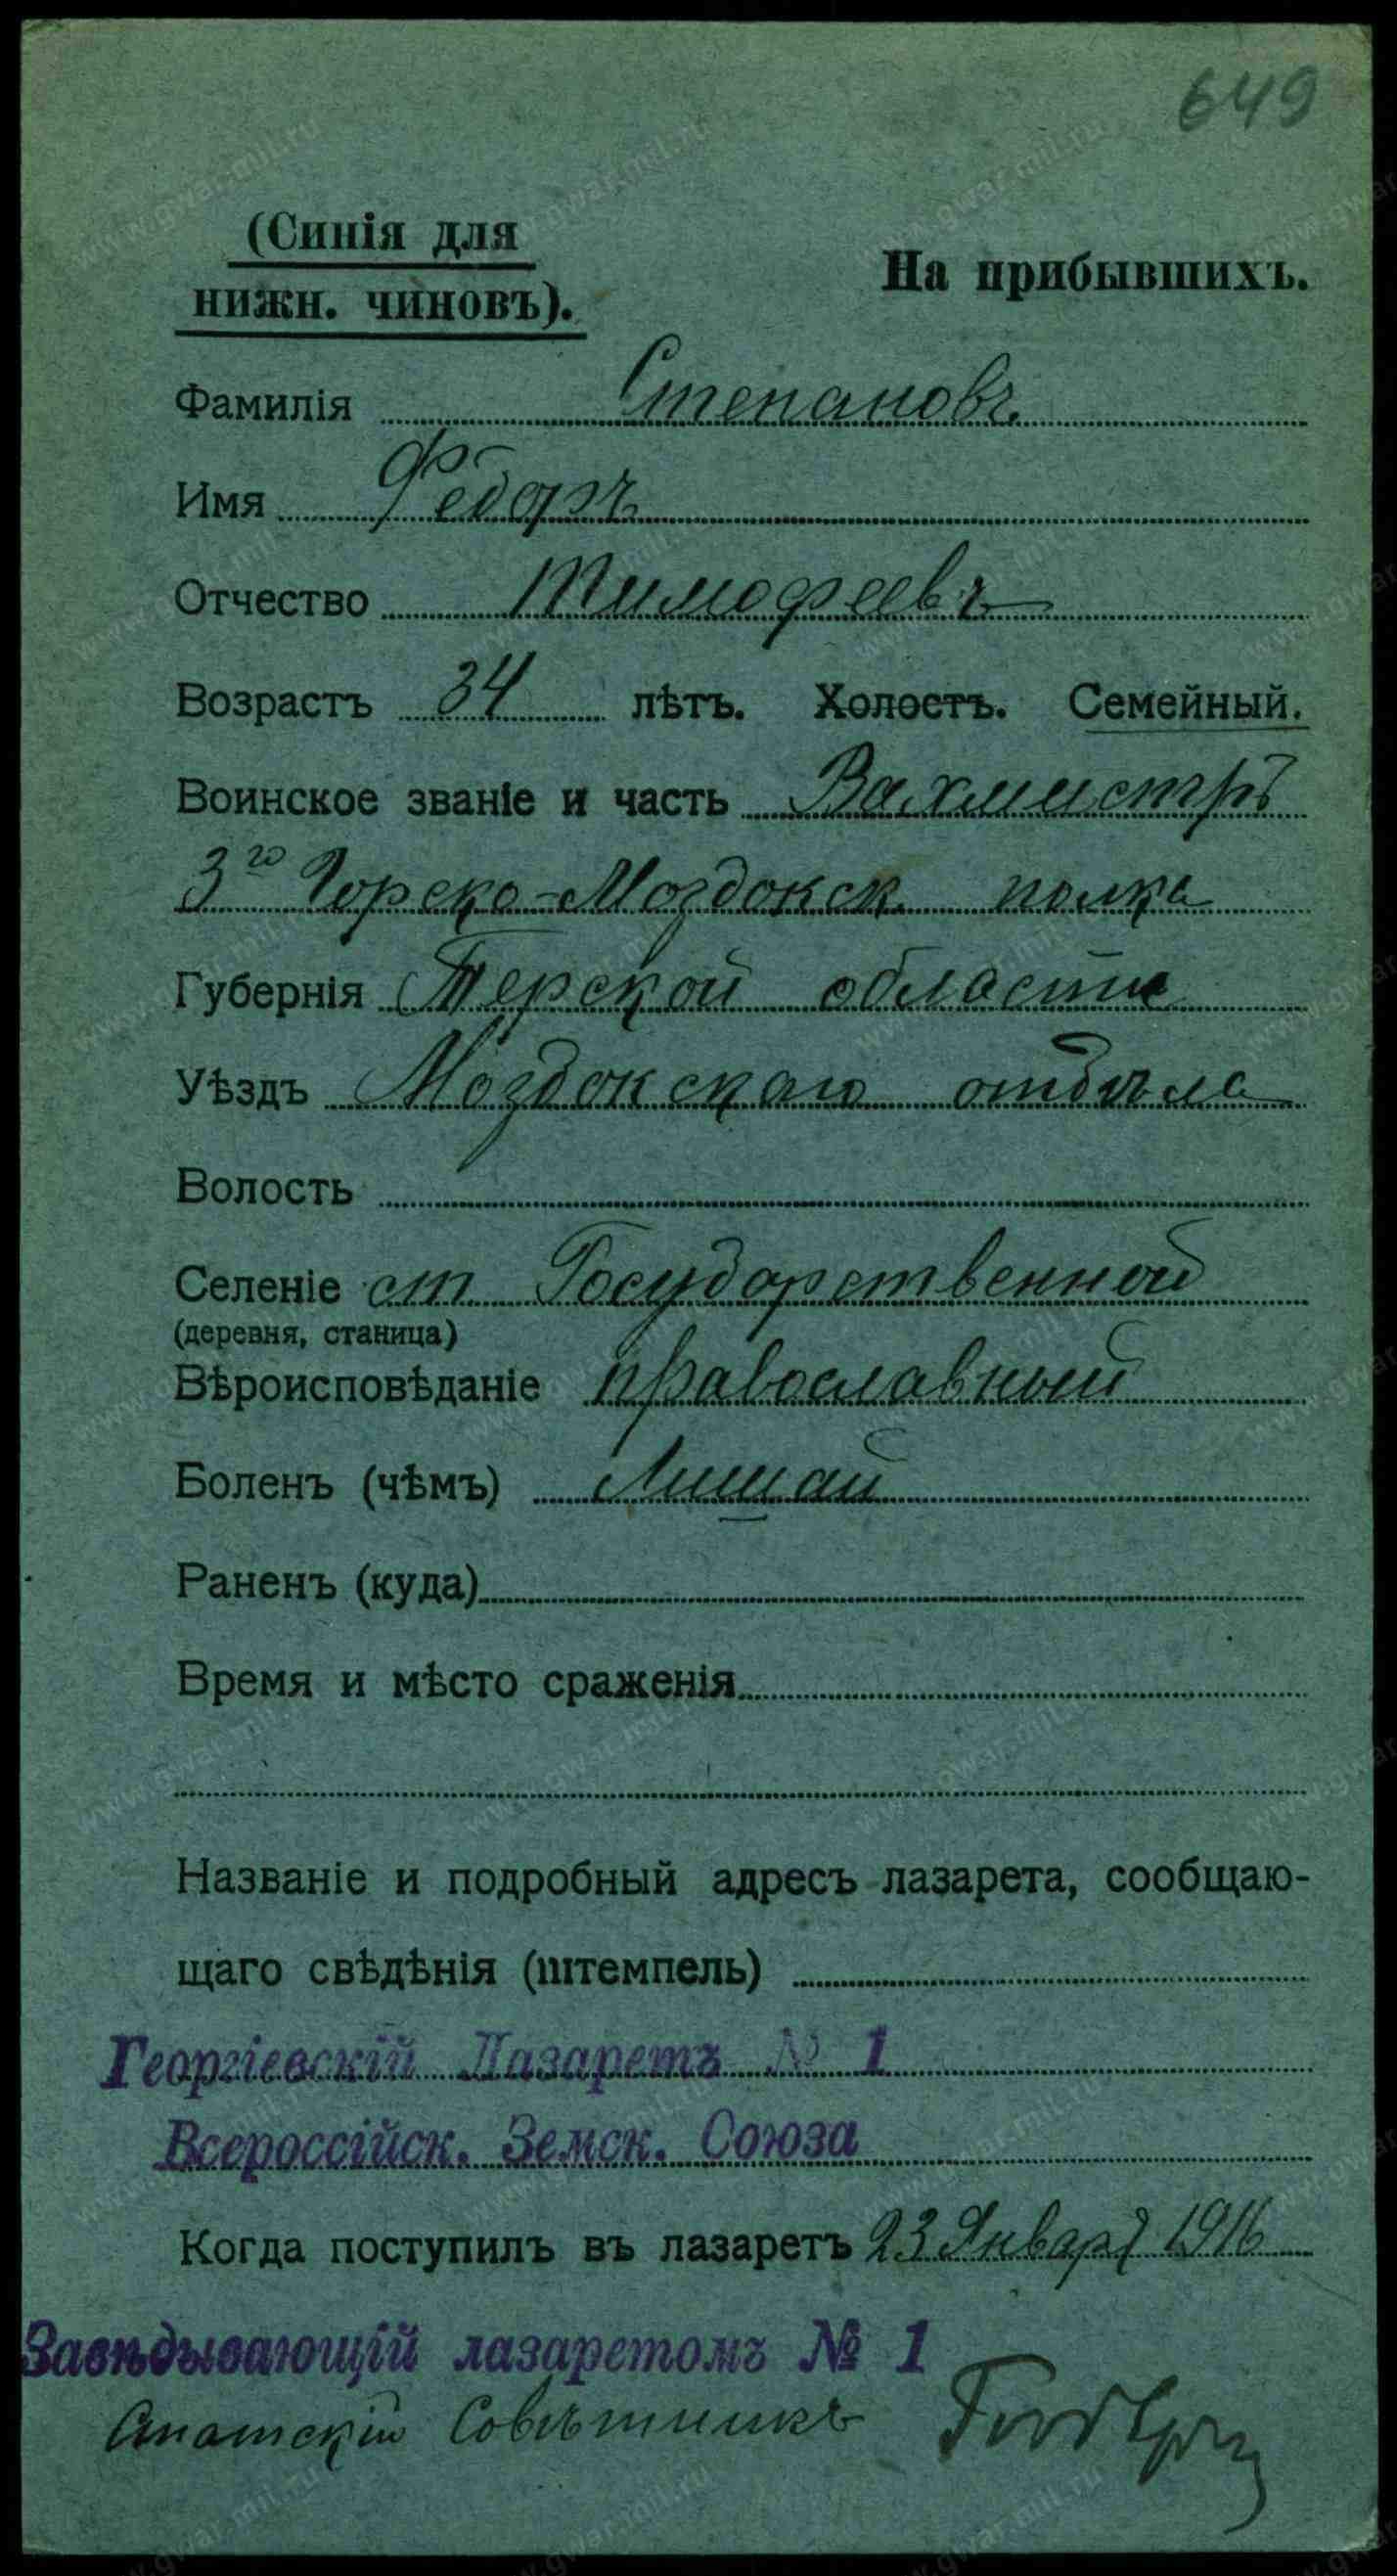 649
(Синія для
нижн. чиновъ).
На прибывшихъ.
Фамилія Степановъ
Имя Федоръ
Отчество Тимофеевъ
Возрастъ 34 лѣтъ. Холостъ. Семейный.
Воинское званіе и часть Вахмистръ
3го Горско-Моздокск. полка
Губернія Терской области
Уѣздъ Моздокскаго отдѣла
Волость
Селеніе ст Государственной
(деревня, станица)
Вѣроисповѣданіе православный
Боленъ (чѣмъ) Лишай
Раненъ (куда)
Время и мѣсто сраженія
Названіе и подробный адресъ лазарета, сообщаю-
щаго свѣдѣнія (штемпель)
Георгіевскій Лазаретъ № 1
Всероссійск. Земск. Союза
Когда поступилъ въ лазаретъ 23 Января 1916
Завѣдывающій лазаретомъ № 1
Статскій Совѣтникъ
www.gwar.mil.ru